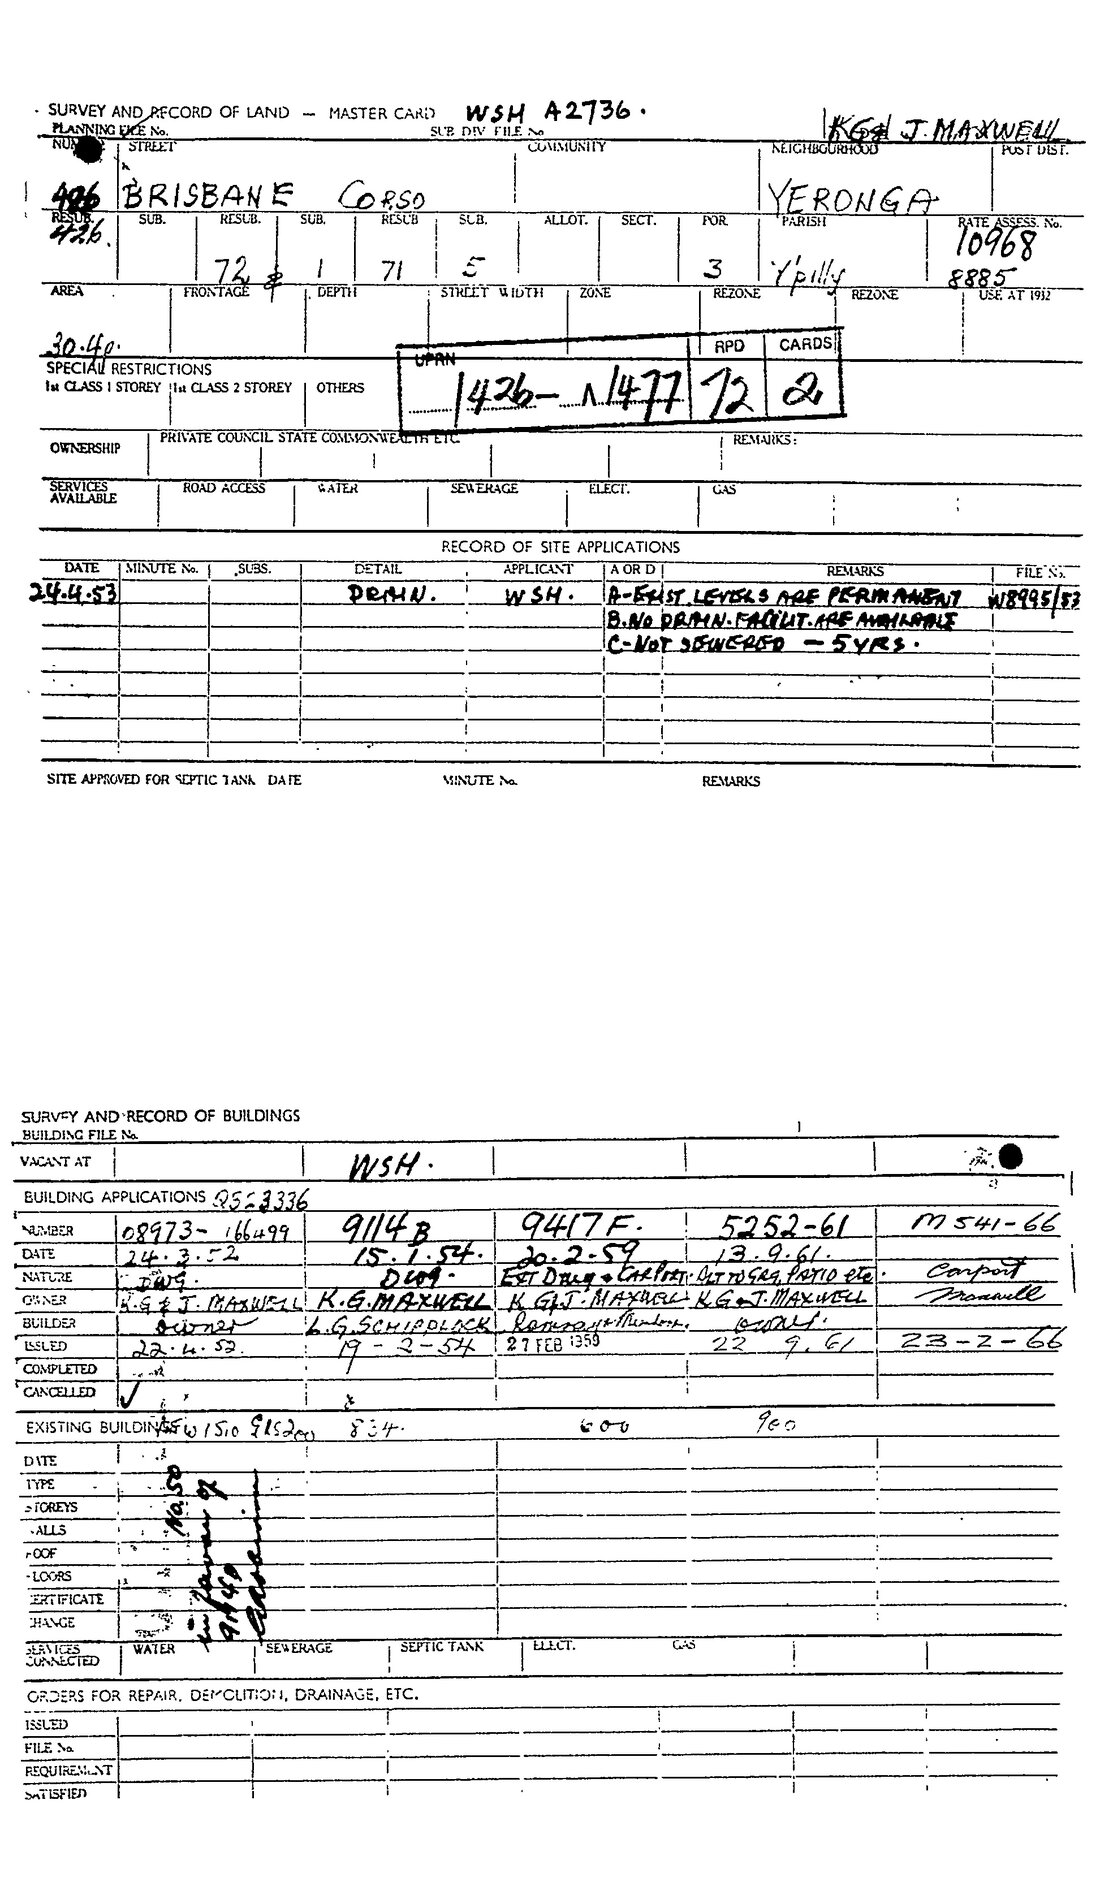 SURVEY AND RECORD OF LAND — MASTER CARD WSH A2736.
PLANNING FILE No. SUB DIV FILE No K G & J. MAXWELL
STREET COMMUNITY NEIGHBOURHOOD POST DIST.
426 BRISBANE CORSO YERONGA
RESUB. SUB. RESUB. SUB. RESUB SUB. ALLOT. SECT. POR. PARISH RATE ASSESS. No.
426. 10968
72 & 1 71 5 3 Y'pilly 8885
AREA FRONTAGE DEPTH STREET WIDTH ZONE REZONE REZONE USE AT 1932
30.4p.
SPECIAL RESTRICTIONS UPRN RPD CARDS
1st CLASS 1 STOREY 1st CLASS 2 STOREY OTHERS
1426- 1477 72 2
OWNERSHIP PRIVATE COUNCIL STATE COMMONWEALTH ETC. REMARKS:
SERVICES AVAILABLE ROAD ACCESS WATER SEWERAGE ELECT. GAS
RECORD OF SITE APPLICATIONS
DATE MINUTE No. SUBS. DETAIL APPLICANT A OR D REMARKS FILE No.
24.4.53 DRAIN. WSH. A-EXIST. LEVELS ARE PERMANENT W8995/53
B. NO DRAIN. FACILIT. ARE AVAILABLE
C-NOT SEWERED — 5 YRS.
SITE APPROVED FOR SEPTIC TANK DATE MINUTE No. REMARKS
SURVEY AND RECORD OF BUILDINGS
BUILDING FILE No.
VACANT AT WSH.
BUILDING APPLICATIONS
NUMBER 08973-166499 9114 B 9417 F. 5252-61 M 541-66
DATE 24.3.52 15.1.54. 20.2-59 13.9.61.
NATURE DWG. DWG. EXT Dwg & CARPORT. ALT TO GRG, PATIO etc. Carport
OWNER K.G & J. MAXWELL K.G. MAXWELL K G & J. MAXWELL K G & J. MAXWELL Maxwell
BUILDER owner L.G. SCHIPPLOCK owner.
ISSUED 22.4.52. 19-2-54 27 FEB 1959 22 9.61 23-2-66
COMPLETED
CANCELLED ✓
EXISTING BUILDINGS 1510 834. 600 900
DATE
TYPE
STOREYS
WALLS
ROOF
FLOORS
CERTIFICATE
CHANGE
No. 50
in favour of
SERVICES CONNECTED WATER SEWERAGE SEPTIC TANK ELECT. GAS
ORDERS FOR REPAIR, DEMOLITION, DRAINAGE, ETC.
ISSUED
FILE No.
REQUIREMENT
SATISFIED